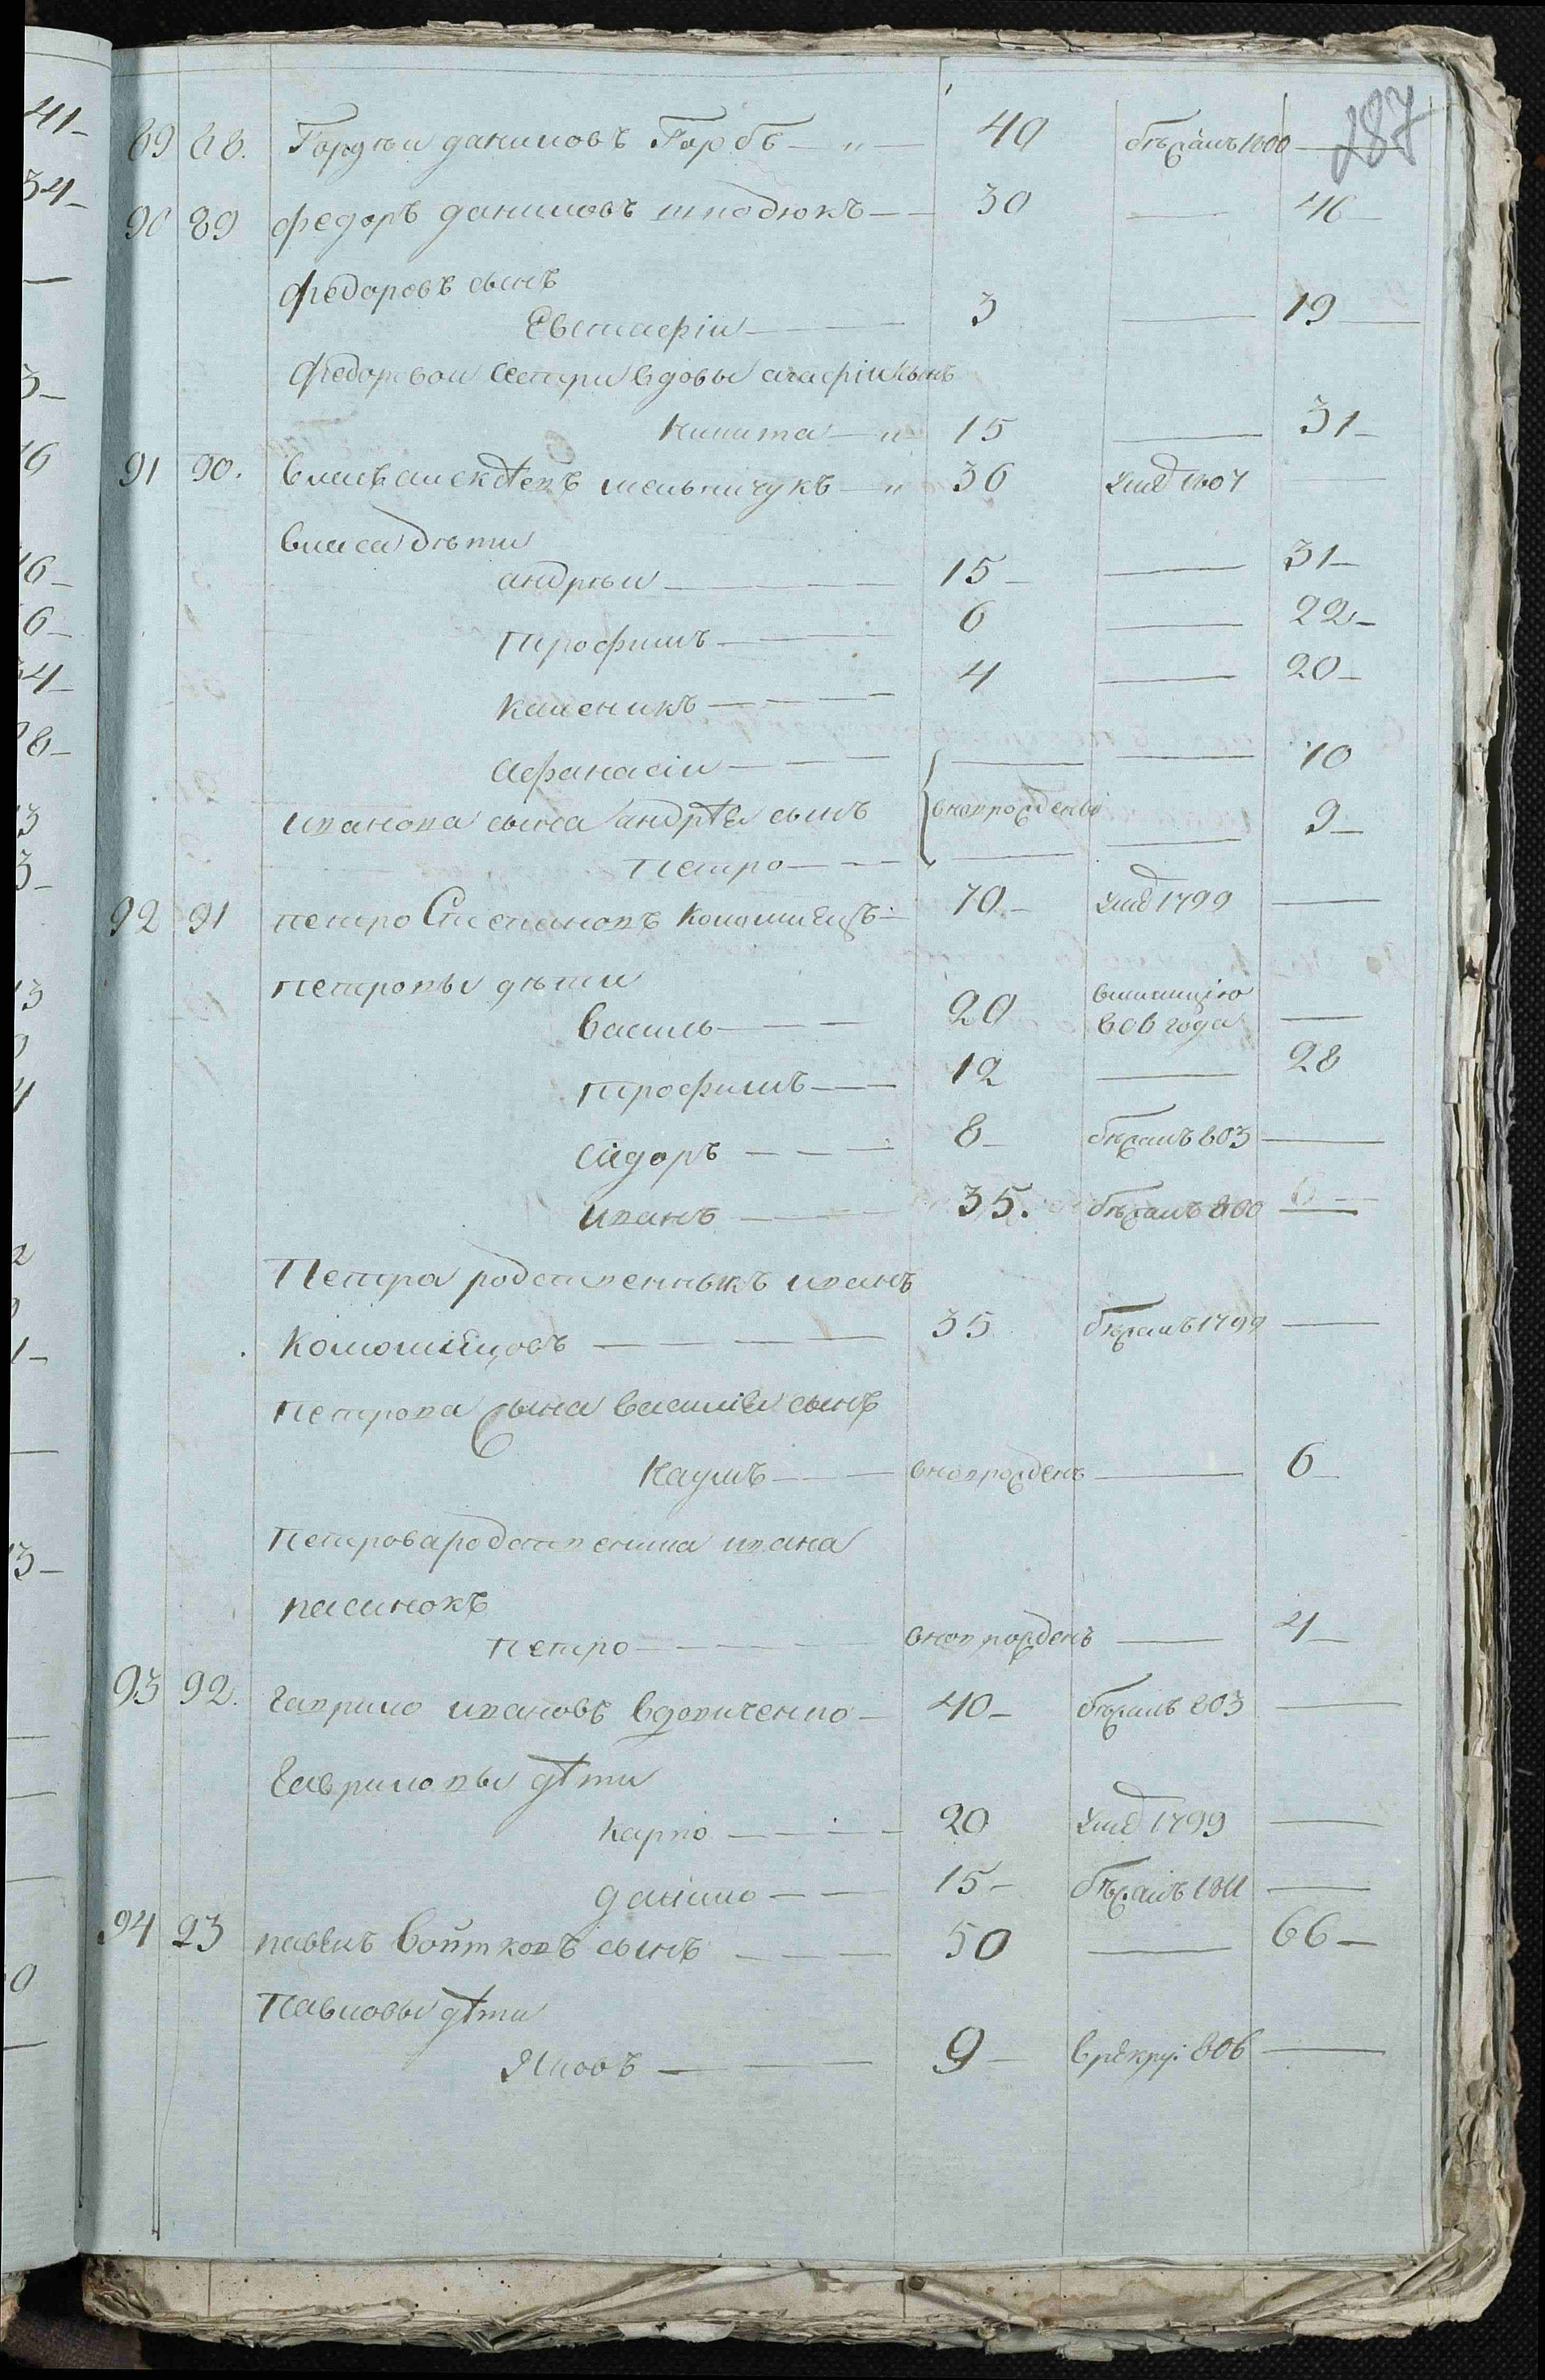 287
89 88. Гордѣи даниловъ Горбъ — „ — 40 бѣжалъ 1800 —
90 89 федоръ даниловъ шподюкъ — 30 — 46 —
федоровъ сынъ
Евстафіи — 3 — 19 —
федоровои сестри вдовы агафіи сынъ
Никита — „ 15 — 31 —
91 90. Власъ алексѣевъ мельничукъ — „ 36 умд 1807 —
власа дѣти
андрѣи — 15 — — 31 —
Трофимъ — 6 — 22 —
Каленикъ — 4 — 20 —
Афанасіи — — — 10
иванова сына андрѣя сынъ вновьрожденъ 9 —
Петро — — —
92 91 петро Степановъ Коломыецъ — 70 — умд 1799 —
петровы дѣти
василь — 20 вмилицію
806 года —
трофимъ — 12 — 28
сидоръ — 8 — бѣжалъ 803 —
иванъ — 35. бѣжалъ 800 —
Петра родственныкъ иванъ
Коломійцовъ — 35 бѣжалъ 1799 —
петрова сына василія сынъ
Наумъ — вноврожденъ — 6
Петрова родственика ивана
пасинокъ
петро — вноврожденъ — 4 —
93 92. гаврило ивановъ вдовиченко — 40 — бѣжалъ 803 —
Гавриловы дѣти
карпо — 20 умд 1799 —
данило — 15 — бѣжалъ 1811 —
94 93 павелъ войтковъ сынъ — 50 — 66 —
Павловы дѣти
Яковъ — 9 — врекру: 806 —